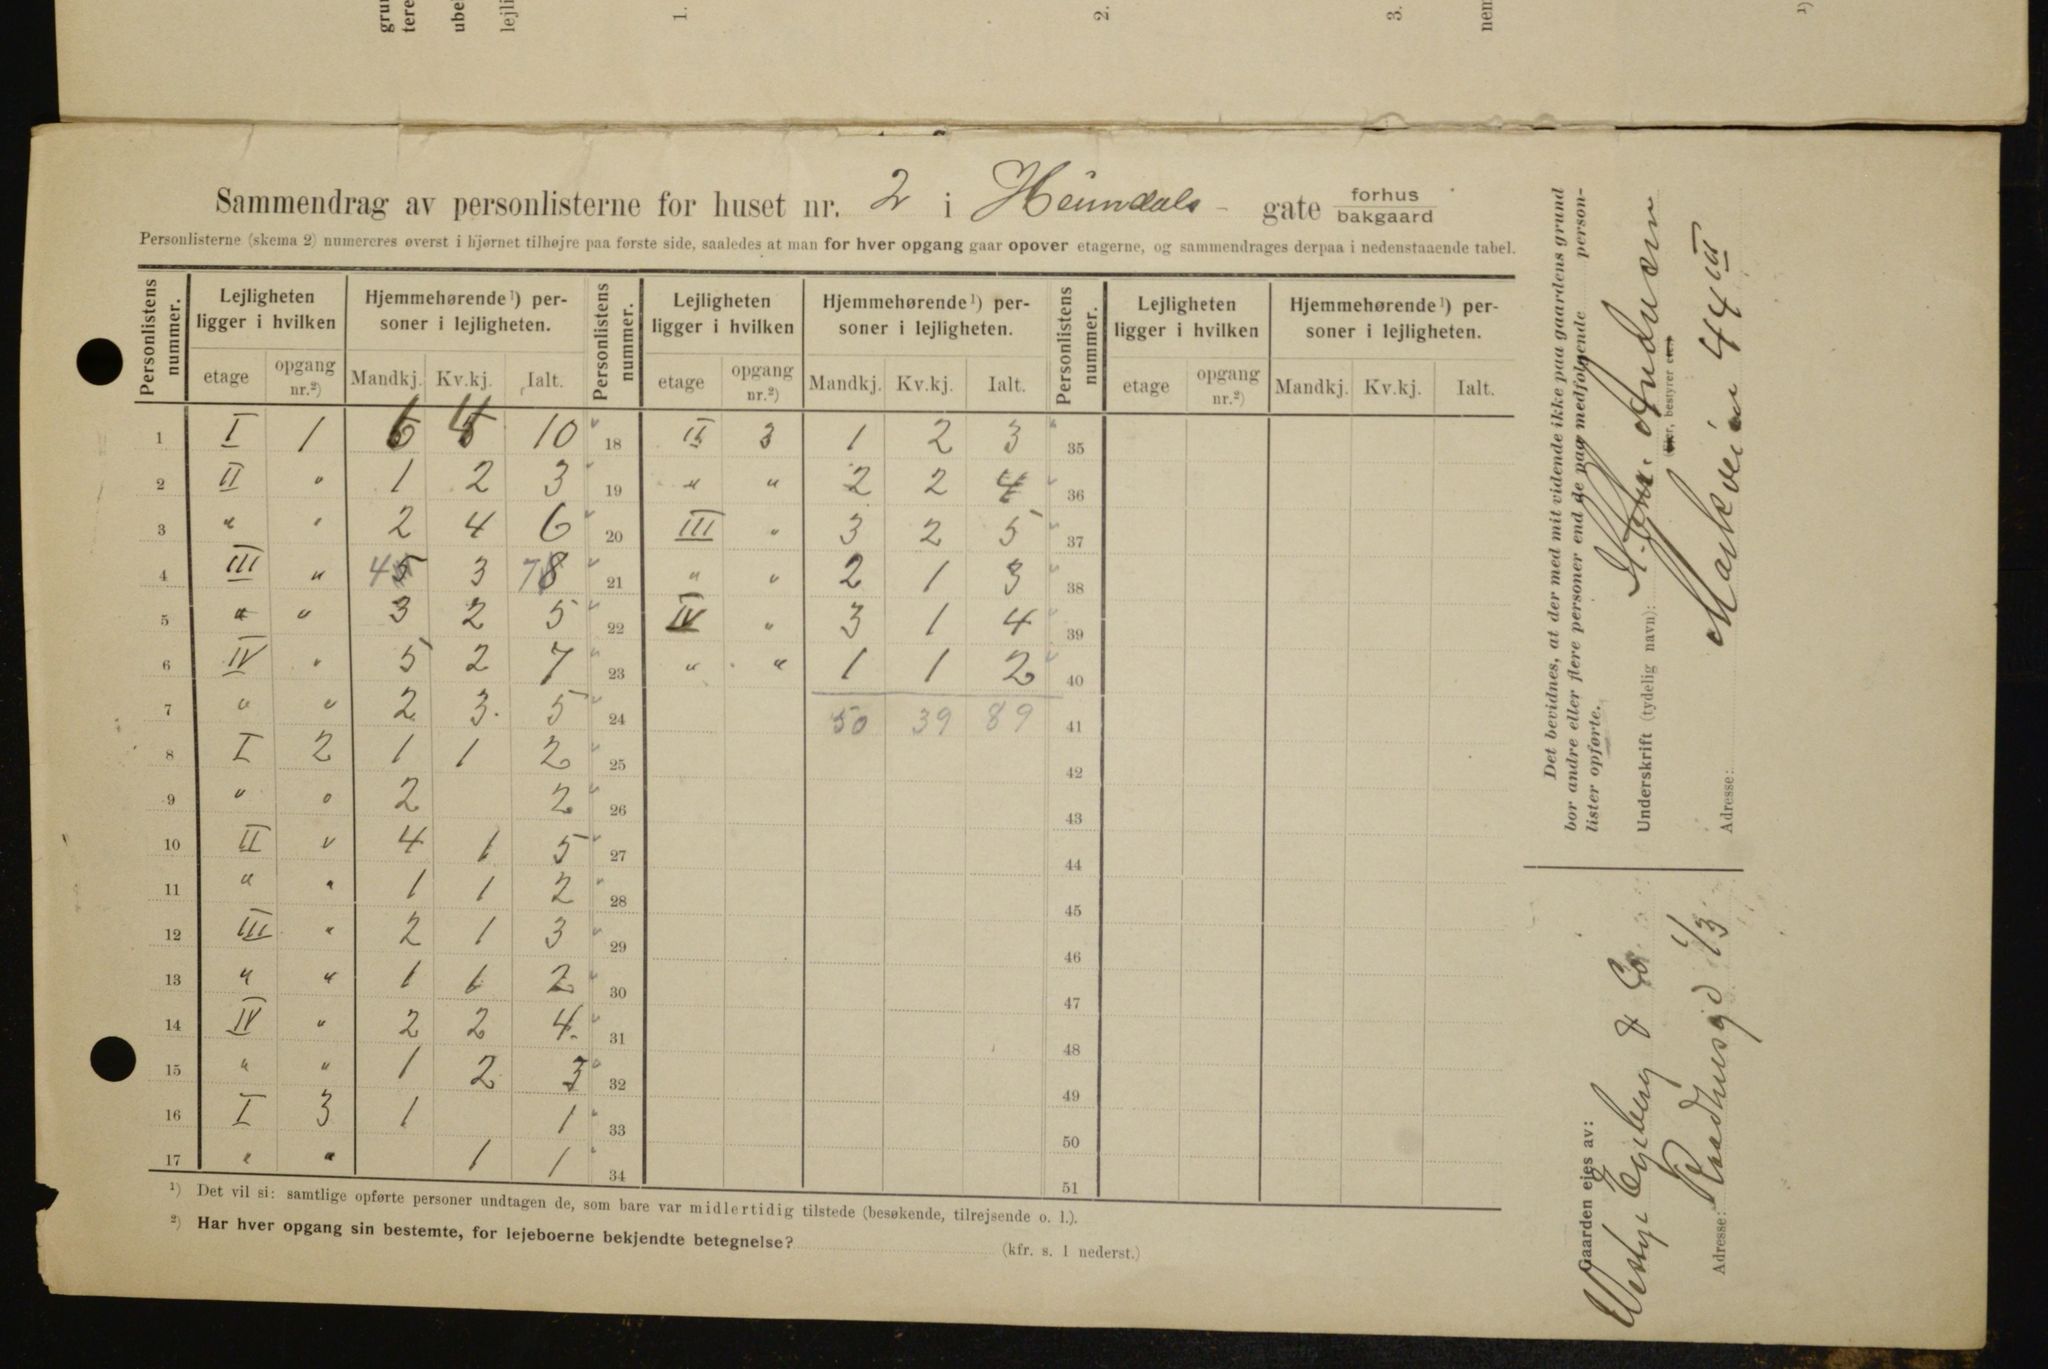 grun
tere
ube
lejli
1.
2.
3.
nem
1)
Sammendrag av personlisterne for huset nr. 2 i Heimdals - gate forhus
bakgaard
Personlisterne (skema 2) numereres øverst i hjørnet tilhøjre paa første side, saaledes at man for hver opgang gaar opover etagerne, og sammendrages derpaa i nedenstaaende tabel.
Personlistens nummer. Lejligheten ligger i hvilken Hjemmehørende ¹) personer i lejligheten. Personlistens nummer. Lejligheten ligger i hvilken Hjemmehørende ¹) personer i lejligheten. Personlistens nummer. Lejligheten ligger i hvilken Hjemmehørende ¹) personer i lejligheten.
etage opgang nr.²) Mandkj. Kv.kj. Ialt. etage opgang nr.²) Mandkj. Kv.kj. Ialt. etage opgang nr.²) Mandkj. Kv.kj. Ialt.
1 I 1 6 4 10 18 II 3 1 2 3 35
2 II " 1 2 3 19 " " 2 2 4 36
3 " " 2 4 6 20 III " 3 2 5 37
4 III " 4 5 3 7 8 21 " " 2 1 3 38
5 " " 3 2 5 22 IV " 3 1 4 39
6 IV " 5 2 7 23 " " 1 1 2 40
7 " " 2 3 5 24 50 39 89 41
8 I 2 1 1 2 25 42
9 " " 2 2 26 43
10 II " 4 1 5 27 44
11 " " 1 1 2 28 45
12 III " 2 1 3 29 46
13 " " 1 1 2 30 47
14 IV " 2 2 4. 31 48
15 " " 1 2 3 32 49
16 I 3 1 1 33 50
17 " " 1 1 34 51
¹) Det vil si: samtlige opførte personer undtagen de, som bare var midlertidig tilstede (besøkende, tilrejsende o. l.).
²) Har hver opgang sin bestemte, for lejeboerne bekjendte betegnelse? (kfr. s. 1 nederst.)
Det bevidnes, at der med mit vidende ikke paa gaardens grund
bor andre eller flere personer end de paa medfølgende personlister opførte.
Underskrift (tydelig navn): Andersen
(eier, bestyrer etc.)
Adresse: Markveien 44 III
Gaarden ejes av:
Westye Egeberg & Co.
Adresse: Raadhusgd 1/3